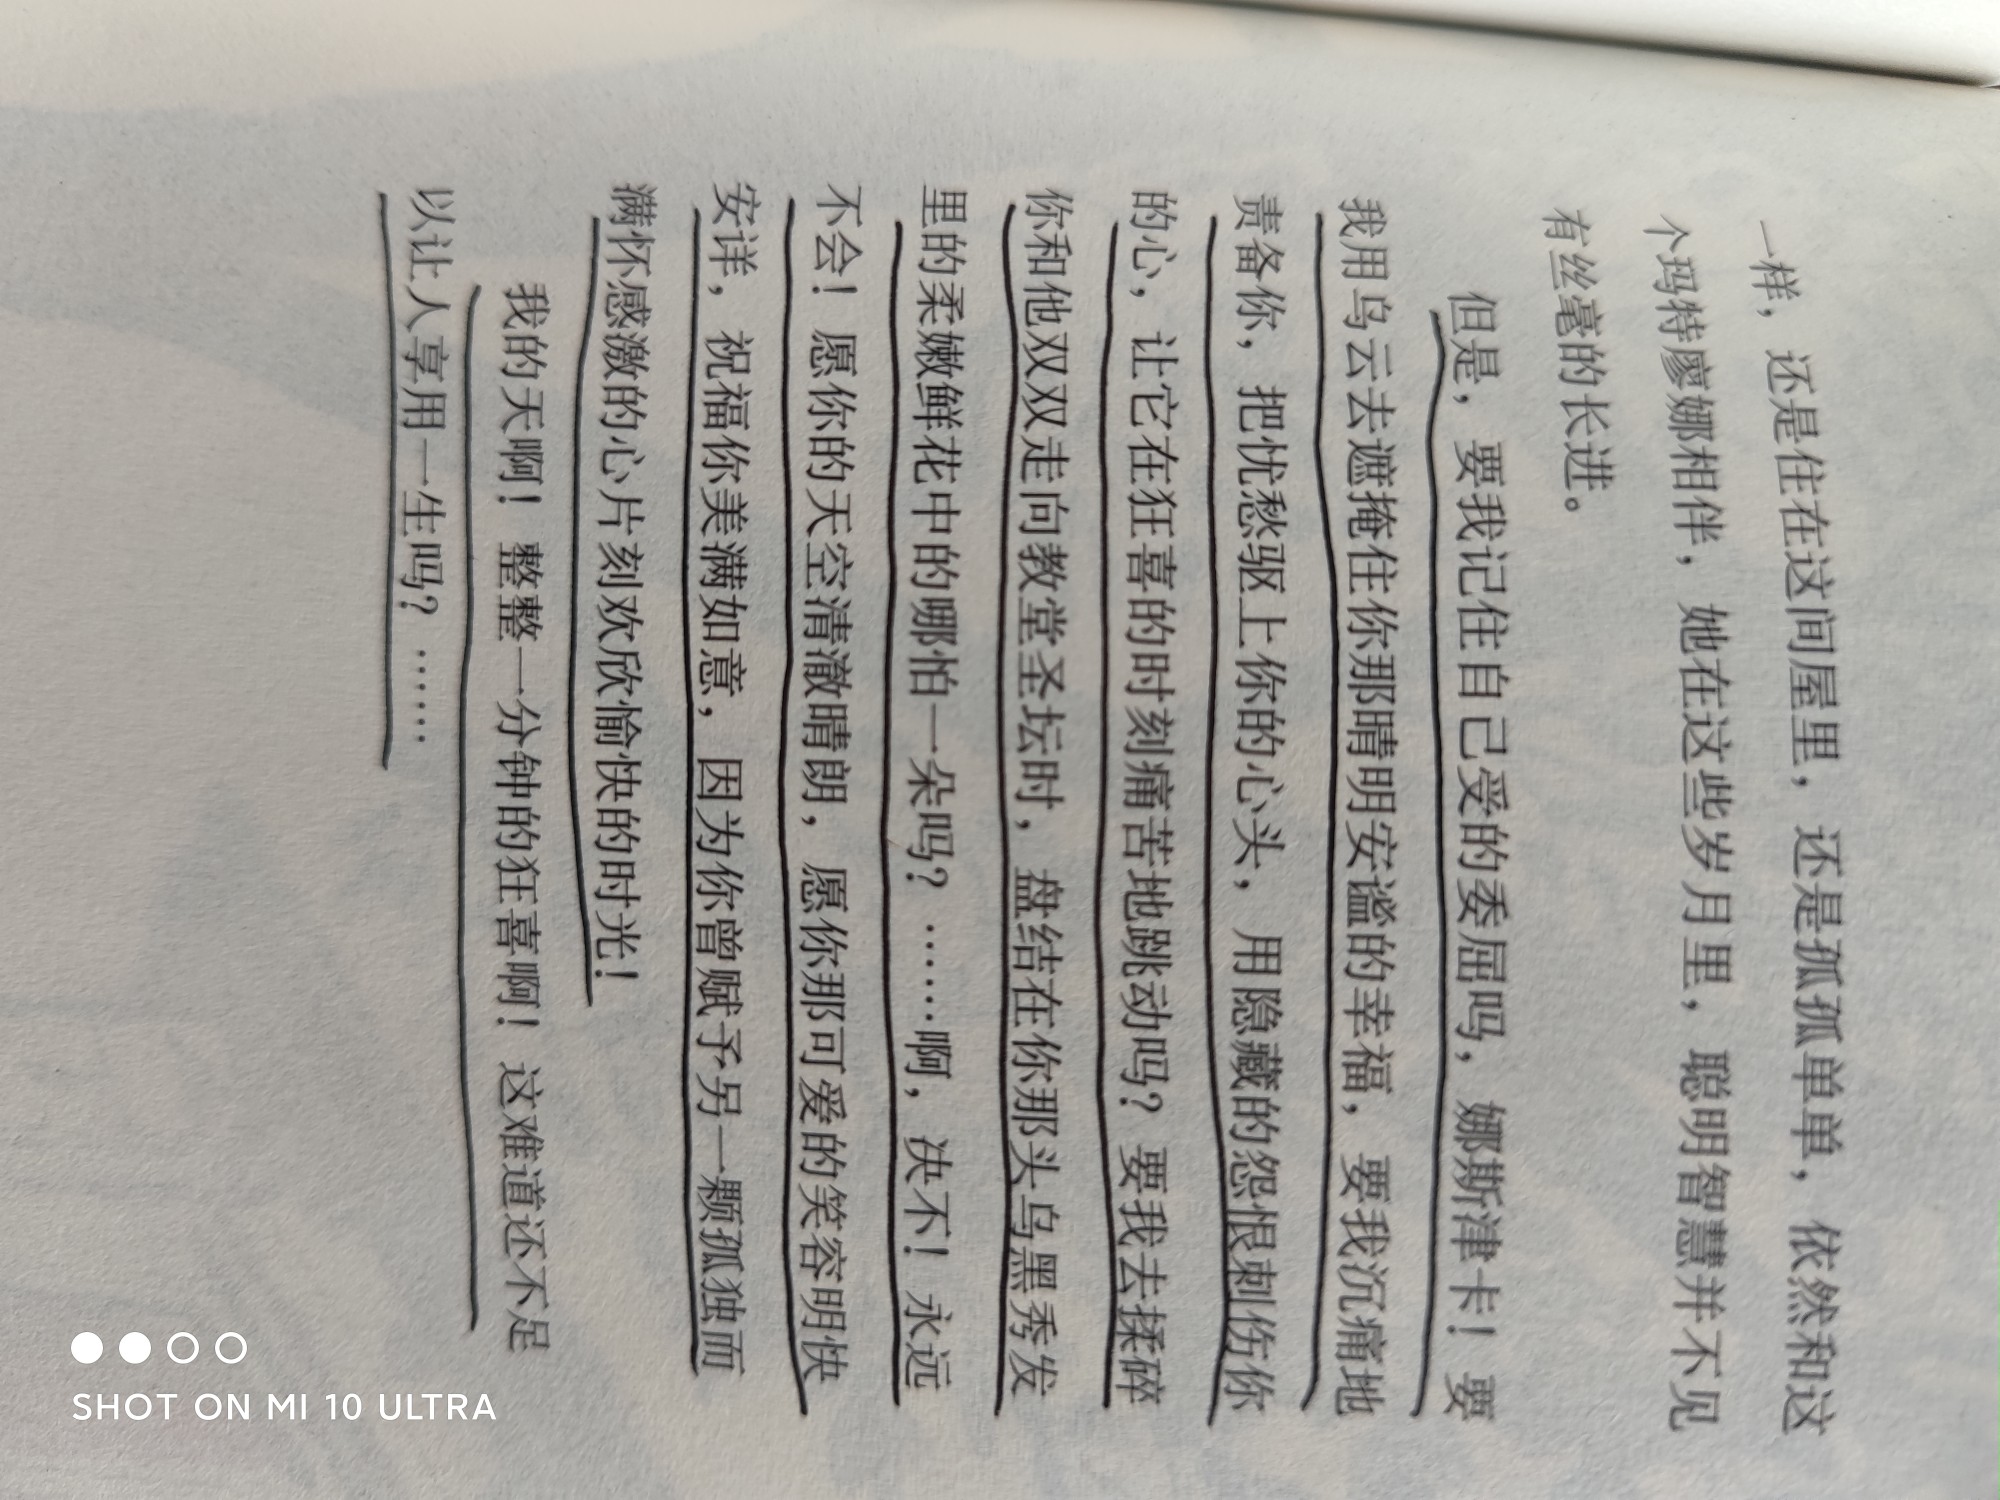 一样，还是住在这间屋里，还是孤孤单单，依然和这
个玛特廖娜相伴，她在这些岁月里，聪明智慧并不见
有丝毫的长进。
但是，要我记住自己受的委屈吗，娜斯津卡！要
我用乌云去遮掩住你那晴明安谧的幸福，要我沉痛地
责备你，把忧愁驱上你的心头，用隐藏的怨恨刺伤你
的心，让它在狂喜的时刻痛苦地跳动吗？要我去揉碎
你和他双双走向教堂圣坛时，盘结在你那头乌黑秀发
里的柔嫩鲜花中的哪怕一朵吗？……啊，决不！永远
不会！愿你的天空清澈晴朗，愿你那可爱的笑容明快
安详，祝福你美满如意，因为你曾赋予另一颗孤独而
满怀感激的心片刻欢欣愉快的时光！
我的天啊！整整一分钟的狂喜啊！这难道还不足
以让人享用一生吗？……
SHOT ON MI 10 ULTRA